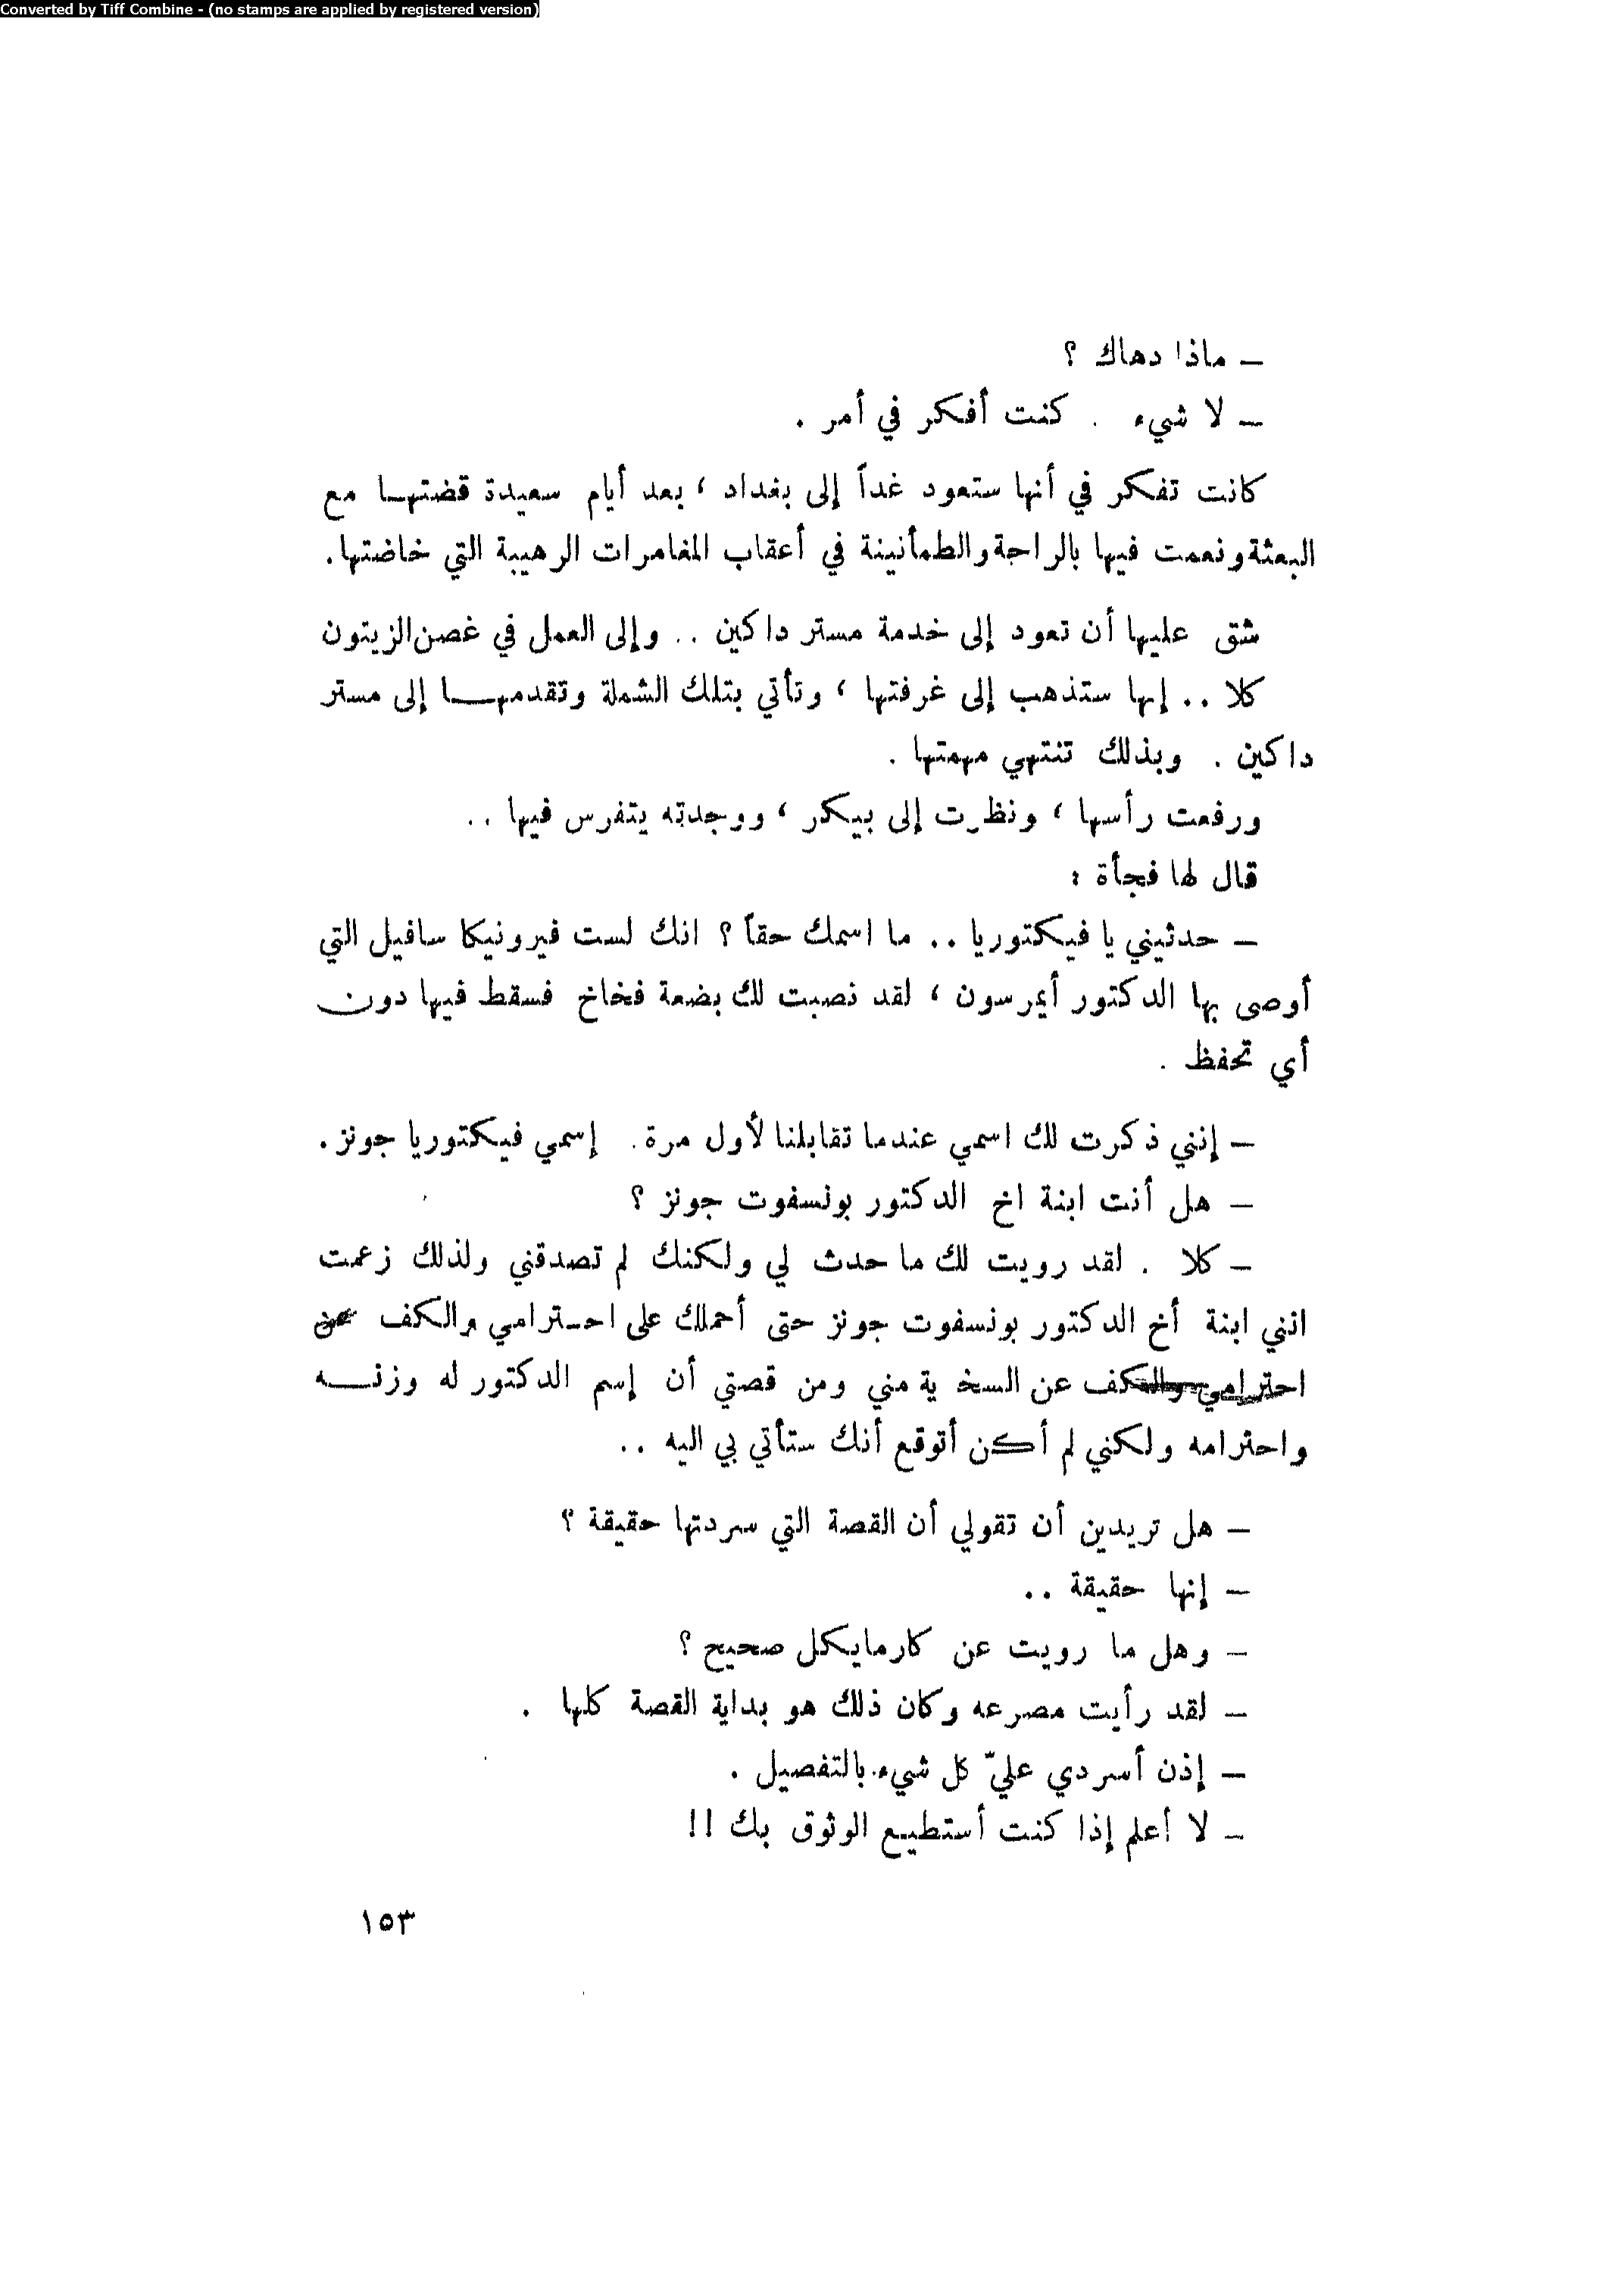 Converted by Tiff Combine - (no stamps are applied by registered version)
– ماذا دهاك ؟
– لا شيء . كنت أفكر في أمر .
كانت تفكر في أنها ستعود غداً إلى بغداد ، بعد أيام سعيدة قضتهـا مع
البعثة ونعمت فيها بالراحة والطمأنينة في أعقاب المغامرات الرهيبة التي خاضتها.
شق عليها أن تعود إلى خدمة مستر داكين .. وإلى العمل في غصن الزيتون
كلا .. إنها ستذهب إلى غرفتها ، وتأتي بتلك الشملة وتقدمهـــا إلى مستر
داكين . وبذلك تنتهي مهمتها .
ورفعت رأسها ، ونظرت إلى بيكر ، ووجدته يتفرس فيها ..
قال لها فجأة :
– حدثيني يا فيكتوريا .. ما اسمك حقاً ؟ انك لست فيرونيكا سافيل التي
أوصى بها الدكتور أيمرسون ، لقد نصبت لك بضعة فخاخ فسقط فيها دون
أي تحفظ .
– إنني ذكرت لك اسمي عندما تقابلنا لأول مرة. إسمي فيكتوريا جونز.
– هل أنت ابنة اخ الدكتور بونسفوت جونز ؟
– كلا . لقد رويت لك ما حدث لي ولكنك لم تصدقني ولذلك زعمت
انني ابنة أخ الدكتور بونسفوت جونز حتى أحملك على احـترامي والكف عن
احترامي والكف عن السخ ية مني ومن قصتي أن إسم الدكتور له وزنـــه
واحترامه ولكني لم أكن أتوقع أنك ستأتي بي اليه ..
– هل تريدين أن تقولي أن القصة التي سردتها حقيقة ؟
– إنها حقيقة ..
– وهل ما رويت عن كارمايكل صحيح ؟
– لقد رأيت مصرعه وكان ذلك هو بداية القصة كلها .
– إذن أسردي عليّ كل شيء بالتفصيل .
– لا أعلم إذا كنت أستطيـع الوثوق بك !!
١٥٣